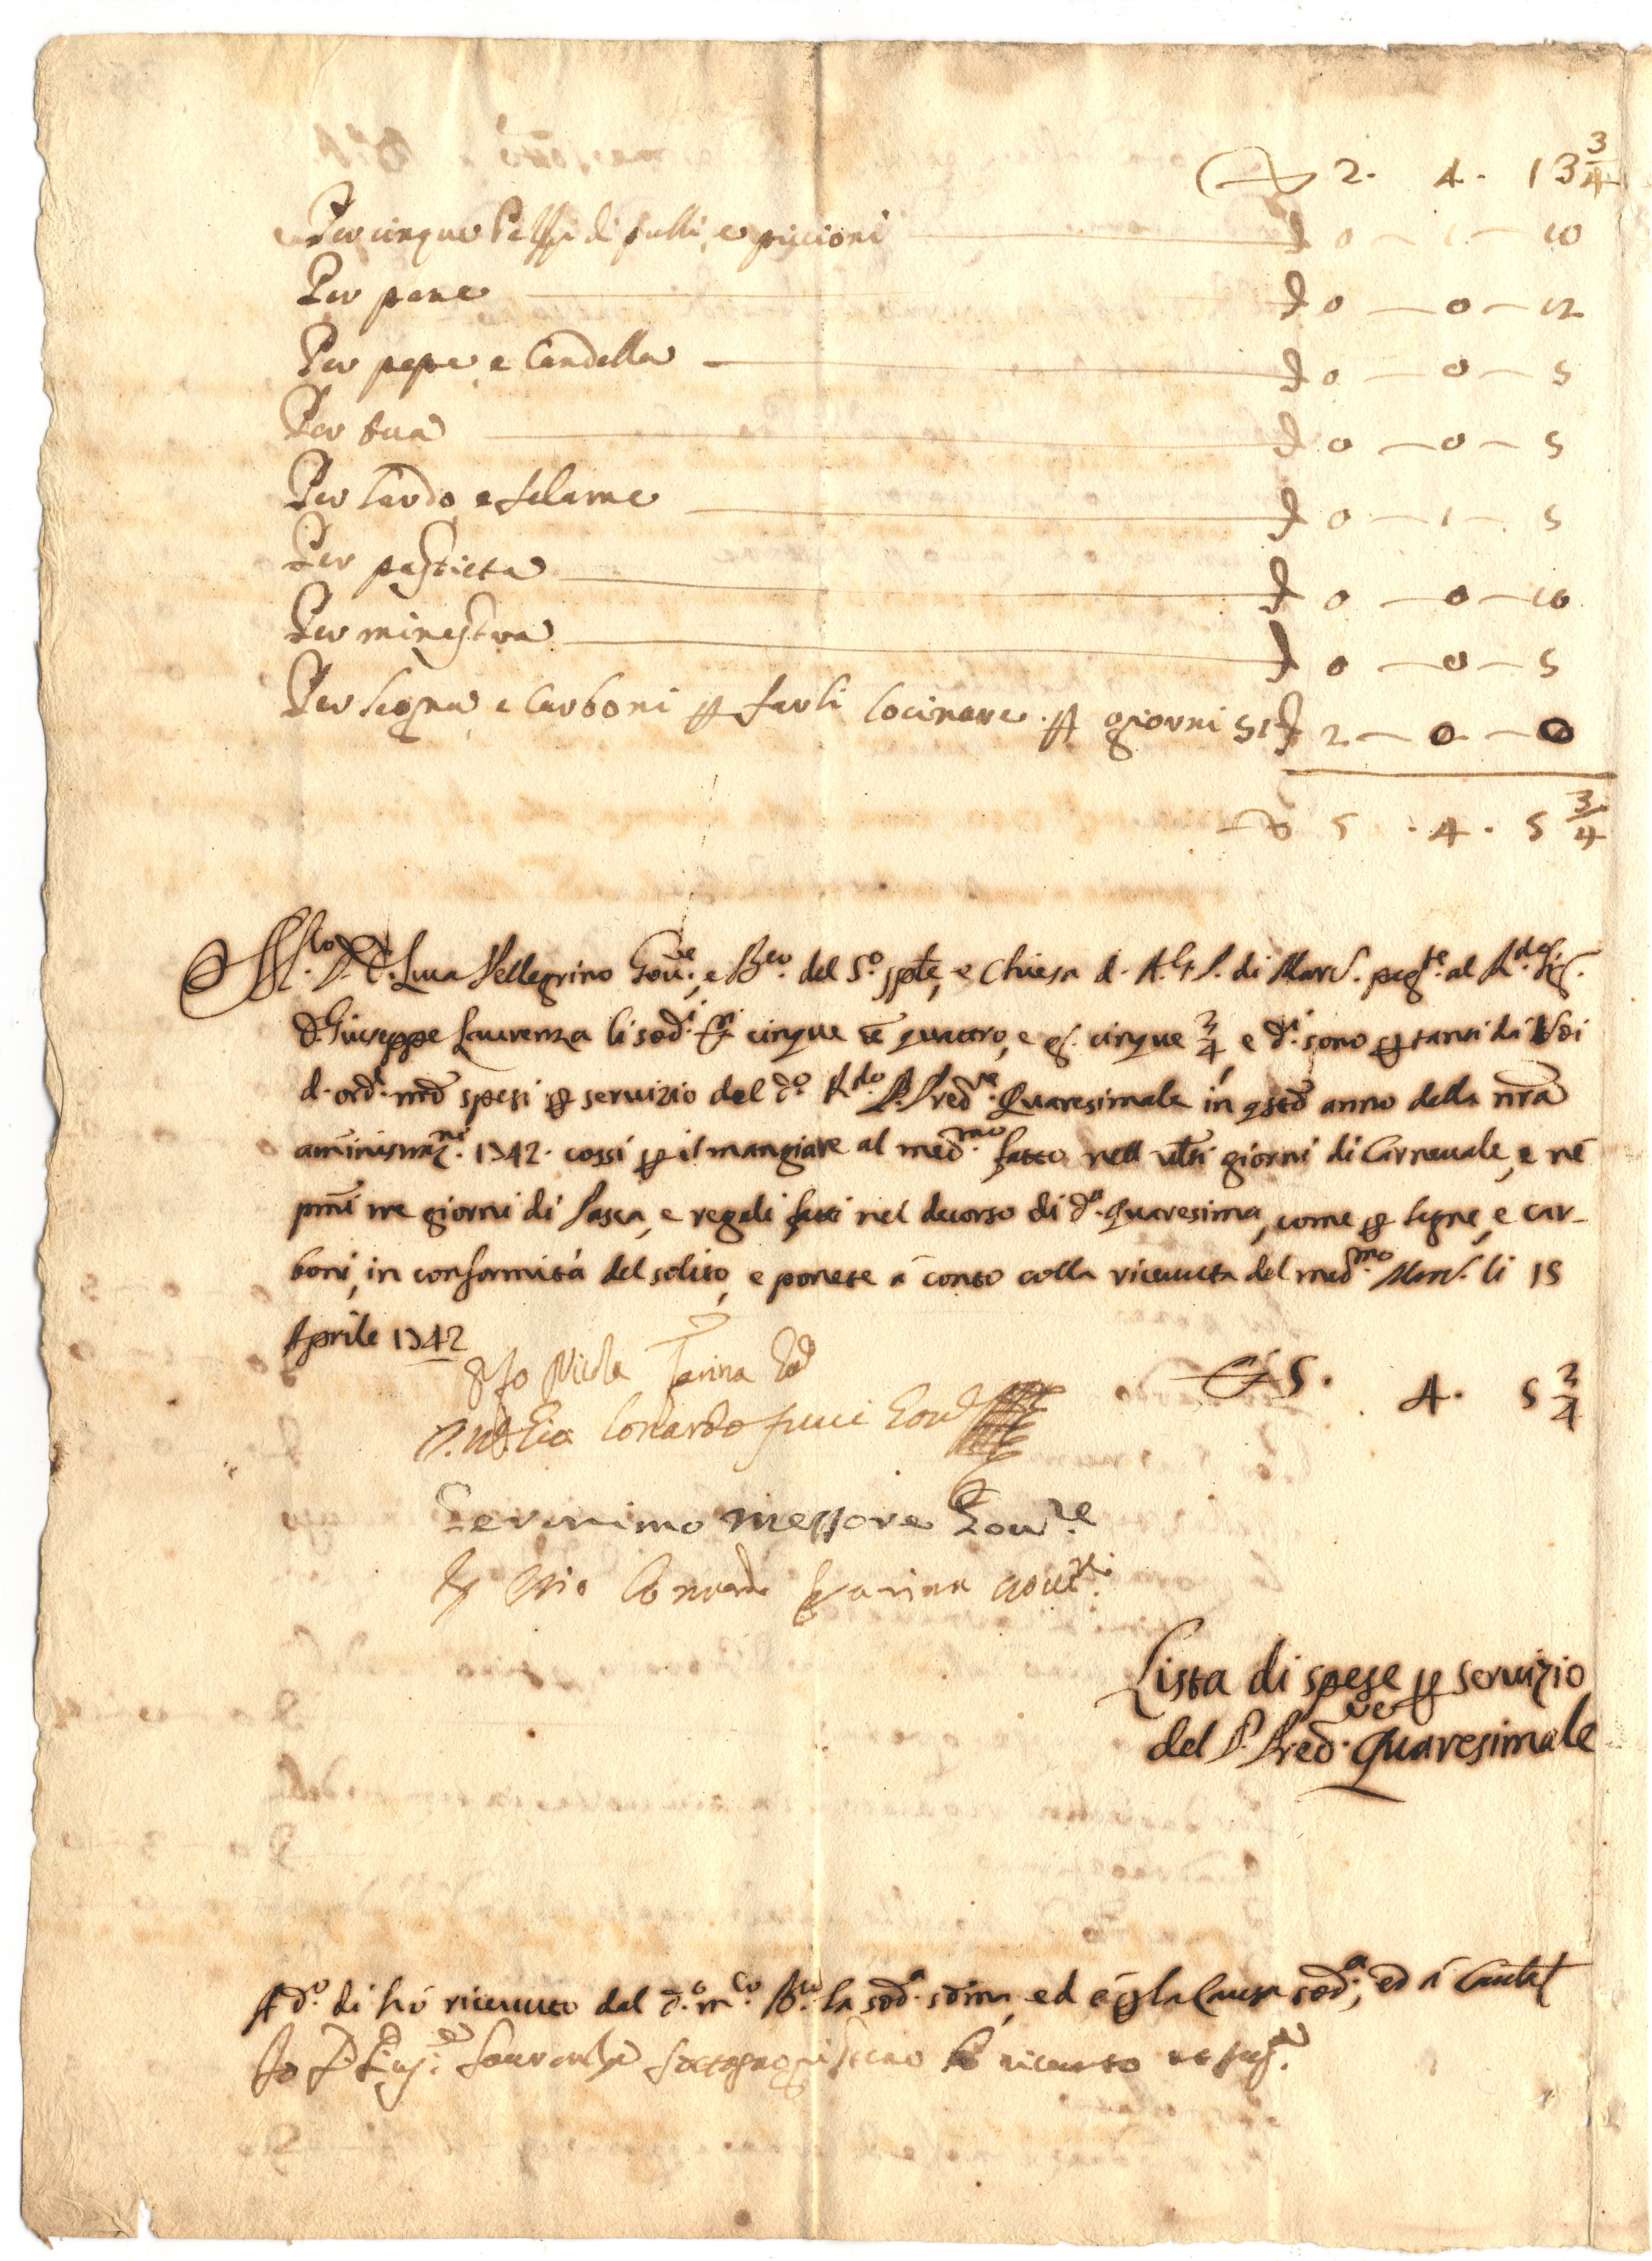 2. 4. 13 3/4
Per cinque Passi di pulli, e piccioni 0 — 1 — 10
Per pane 0 — 0 — 12
Per pepe e Candella 0 — 0 — 5
Per 0 — 0 — 5
Per lardo, e salame 0 — 1 — 5
Per pasticta 0 — 0 — 10
Per minestra 0 — 0 — 5
Per legna e Carboni p farli Cocinare. p giorni 51 2 — 0 — 0
5 . 4 . 5 3/4
D. Luca Pellegrino Gov.re, e B.ro del S.o sple, e Chiesa d. A.G.P. di Mard. pag.te al R.do Sig.
D. Giuseppe Laurenza li sod.i cinque tt quattro, e g. cinque 3/4, e d.i sono p tanti da Voi
d. ord. nrõ spesi p servizio del d.o R.do P. Pred.re Quaresimale in qsto anno della nrã
amministraz.ne 1742. cossi p il mangiare al med.mo fatto nell ulti giorni di Carnevale, e ne
pmi tre giorni di Pasca, e regali fatti nel decorso di d.a Quaresima, come p legne, e car-
boni, in conformità del solito, e ponete à conto colla ricevuta del med.mo Mard. li 15
Aprile 1742
Io Nicola Farina 5. 4. 5 3/4
Lonardo
Geronimo Messore Gov.re
Farina
Lista di spese p servizio
del P. Pred.re Quaresimale
A d.o dì hò ricevuto dal d.o m.co B.ro la sod.a somma, ed è p la causa sod.a, ed à
Io D. Gius.e Laurenza ho ricevuto